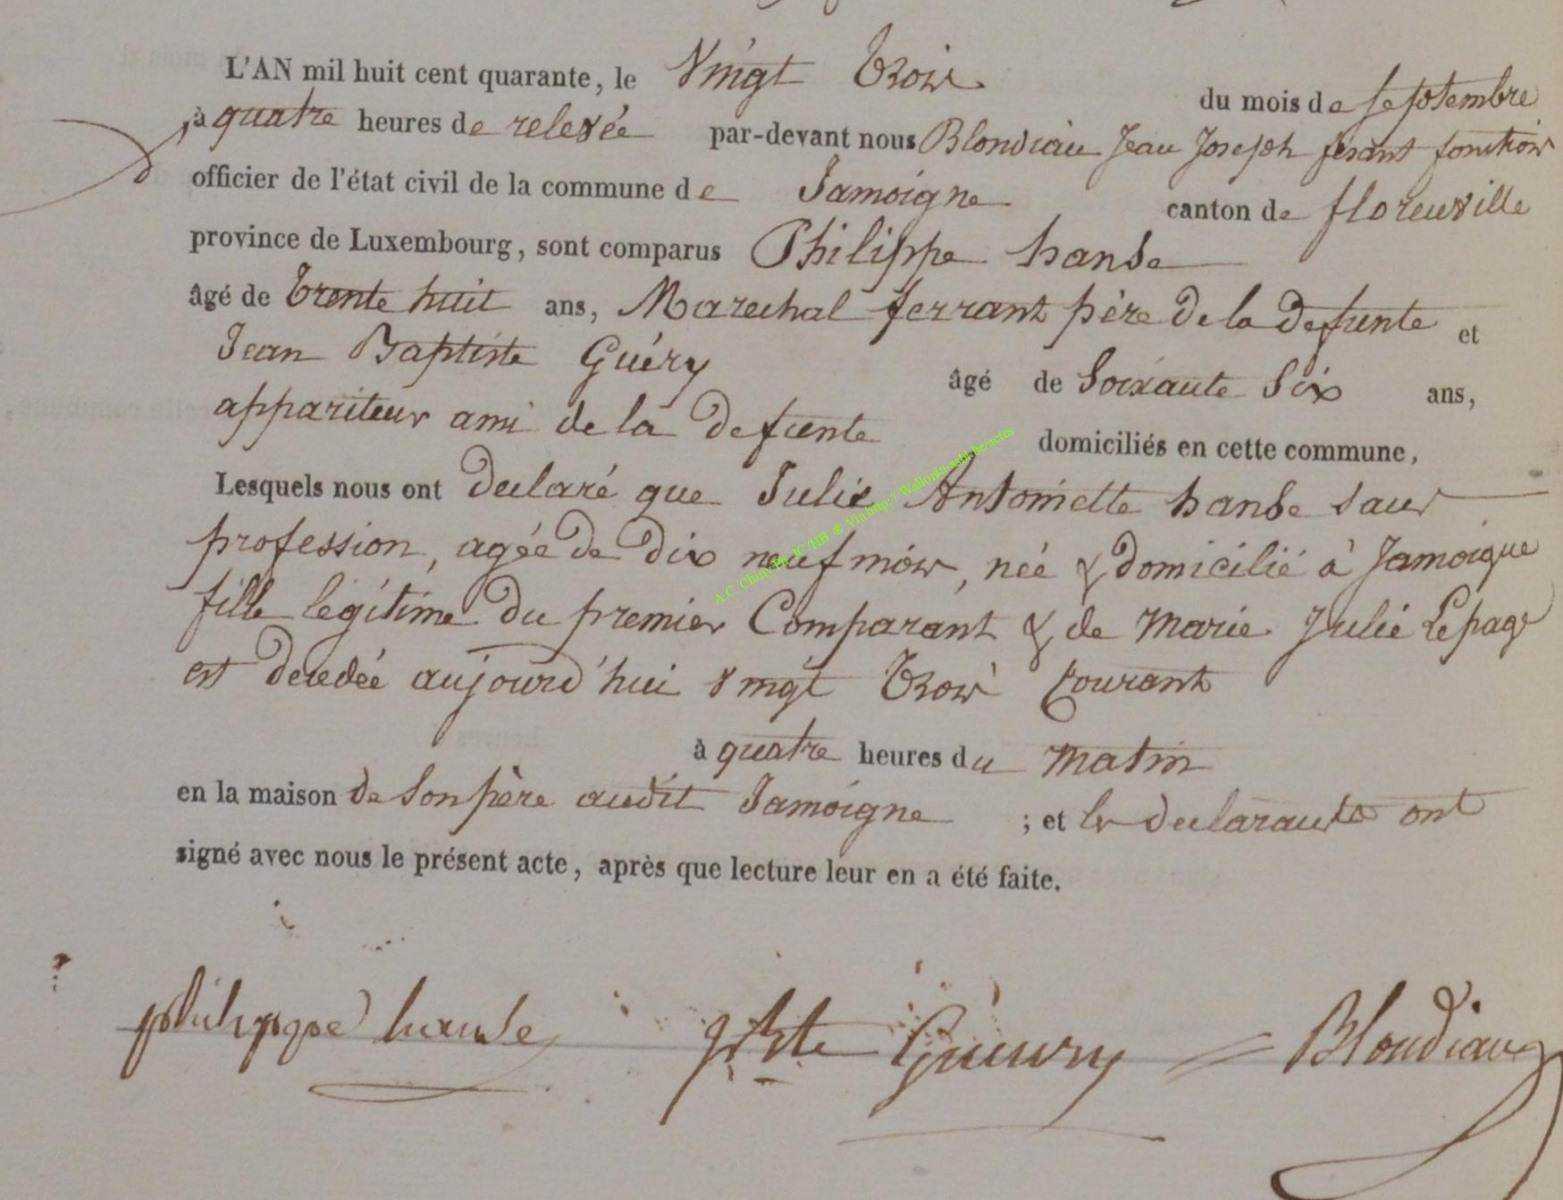 L'AN mil huit cent quarante, le Vingt trois du mois de septembre
à quatre heures de relevée par-devant nous Blondiau Jean Joseph fesant fonction
officier de l'état civil de la commune de Jamoigne canton de florenville
province de Luxembourg, sont comparus Philippe hanse
âgé de trente huit ans, Marechal ferrant père de la defunte et
Jean Baptiste Guéry âgé de Soixante Six ans,
appariteur ami de la defunte domiciliés en cette commune,
Lesquels nous ont declaré que Julie Antoinette hanse sans
profession, agée de dix neuf mois, née & domicilié à Jamoigne
fille légitime du premier Comparant & de Marie Julie Lepage
est decedée aujourd'hui vingt trois Courant
à quatre heures du matin
en la maison de son père audit Jamoigne ; et les declarants ont
signé avec nous le présent acte, après que lecture leur en a été faite.
philippe hanse JBte Guiury Blondiau